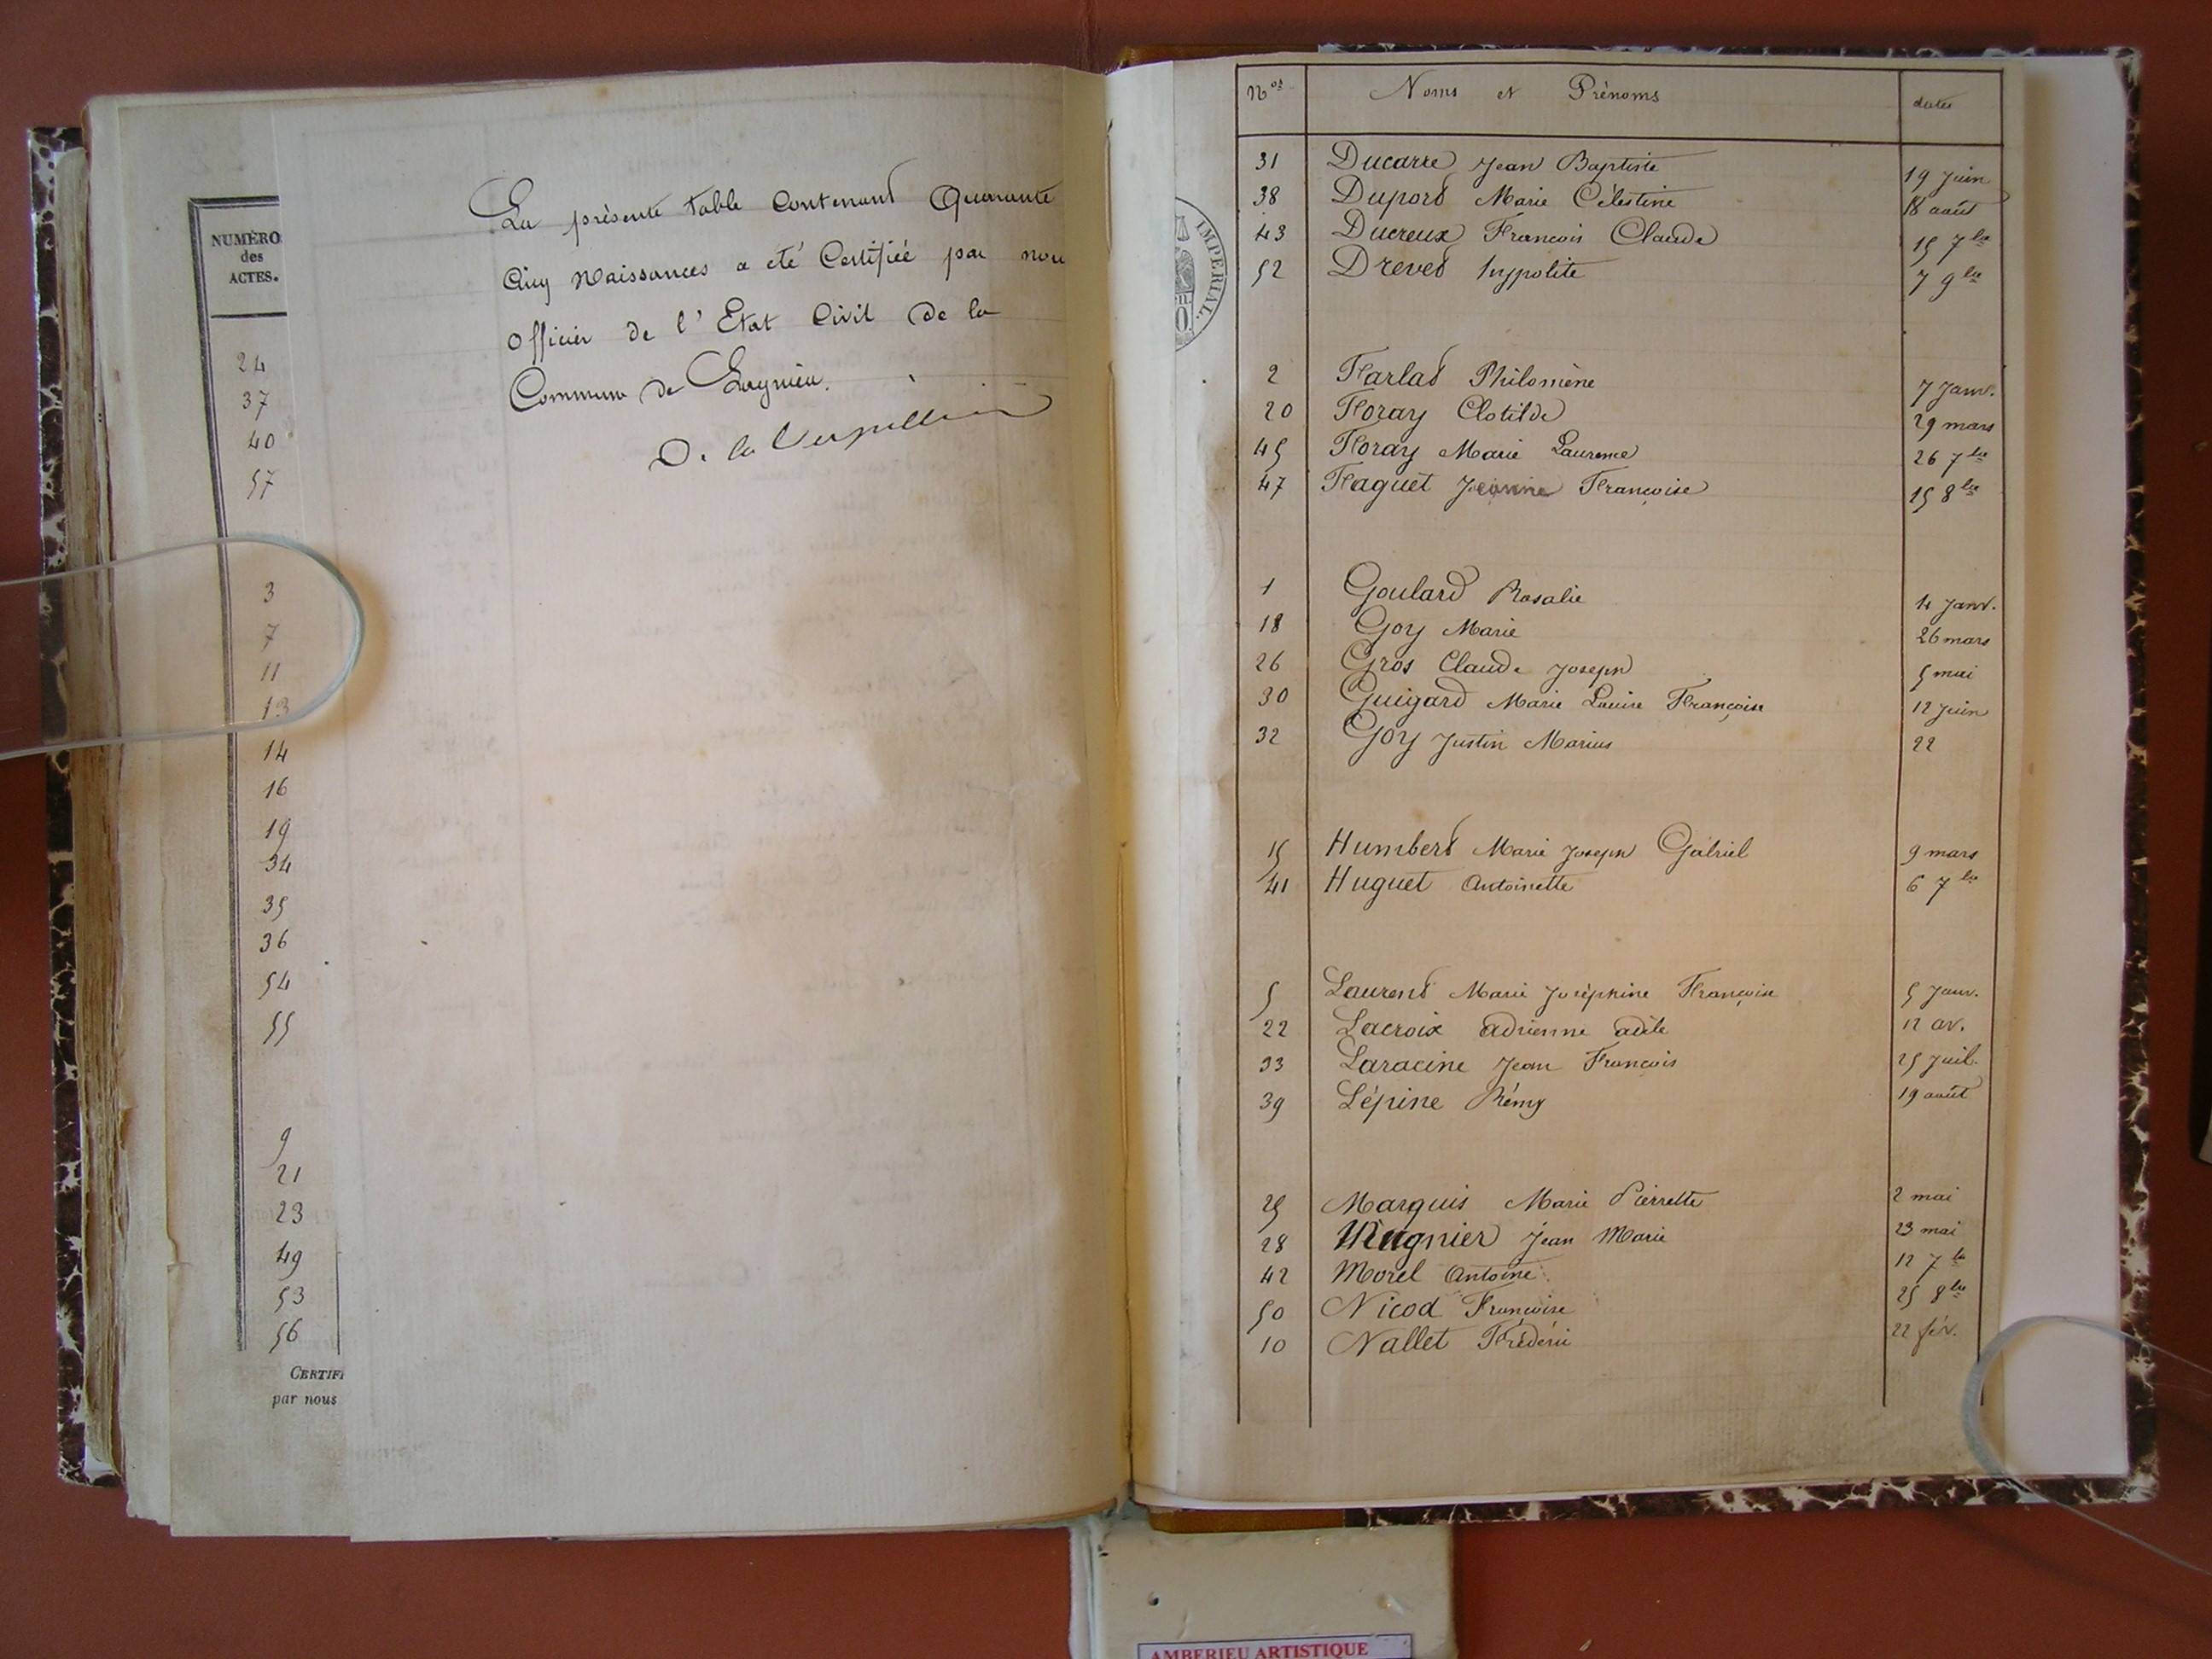 NUMÉRO
des
ACTES.
24
37
40
57
3
7
11
13
14
16
19
34
35
36
54
55
9
21
23
49
53
56
CERTIFI
par nous
La présente table Contenant Quarante
Cinq Naissances a été Certifiée par nou
Officier de l'Etat Civil de la
Commune de Lagnieu.
D. la Verpillière
IMPERIAL.
Nos Noms et Prénoms dates
31 Ducarre Jean Baptiste 19 Juin
38 Duport Marie Célestine 18 août
43 Ducreux François Claude 15 7bre
52 Drevet Hyppolite 7 9bre
2 Farlat Philomène 7 Janv.
20 Foray Clotilde 29 mars
45 Foray Marie Laurence 26 7bre
47 Faguet Jeanne Françoise 15 8bre
1 Goulard Rosalie 4 Janv.
18 Goy Marie 26 mars
26 Gros Claude Joseph 5 mai
30 Guigard Marie Louise Françoise 12 Juin
32 Goy Justin Marius 22
15 Humbert Marie Joseph Gabriel 9 mars
41 Huguet Antoinette 6 7bre
5 Laurent Marie Joséphine Françoise 5 Janv.
22 Lacroix adrienne adèle 12 av.
33 Laracine Jean François 25 Juil.
39 Lépine Rémy 19 août
25 Marquis Marie Pierrette 2 mai
28 Mugnier Jean Marie 23 mai
42 Morel Antoine 12 7bre
50 Nicod Françoise 25 8bre
10 Nallet Frédéric 22 fév.
AMBERIEU ARTISTIQUE